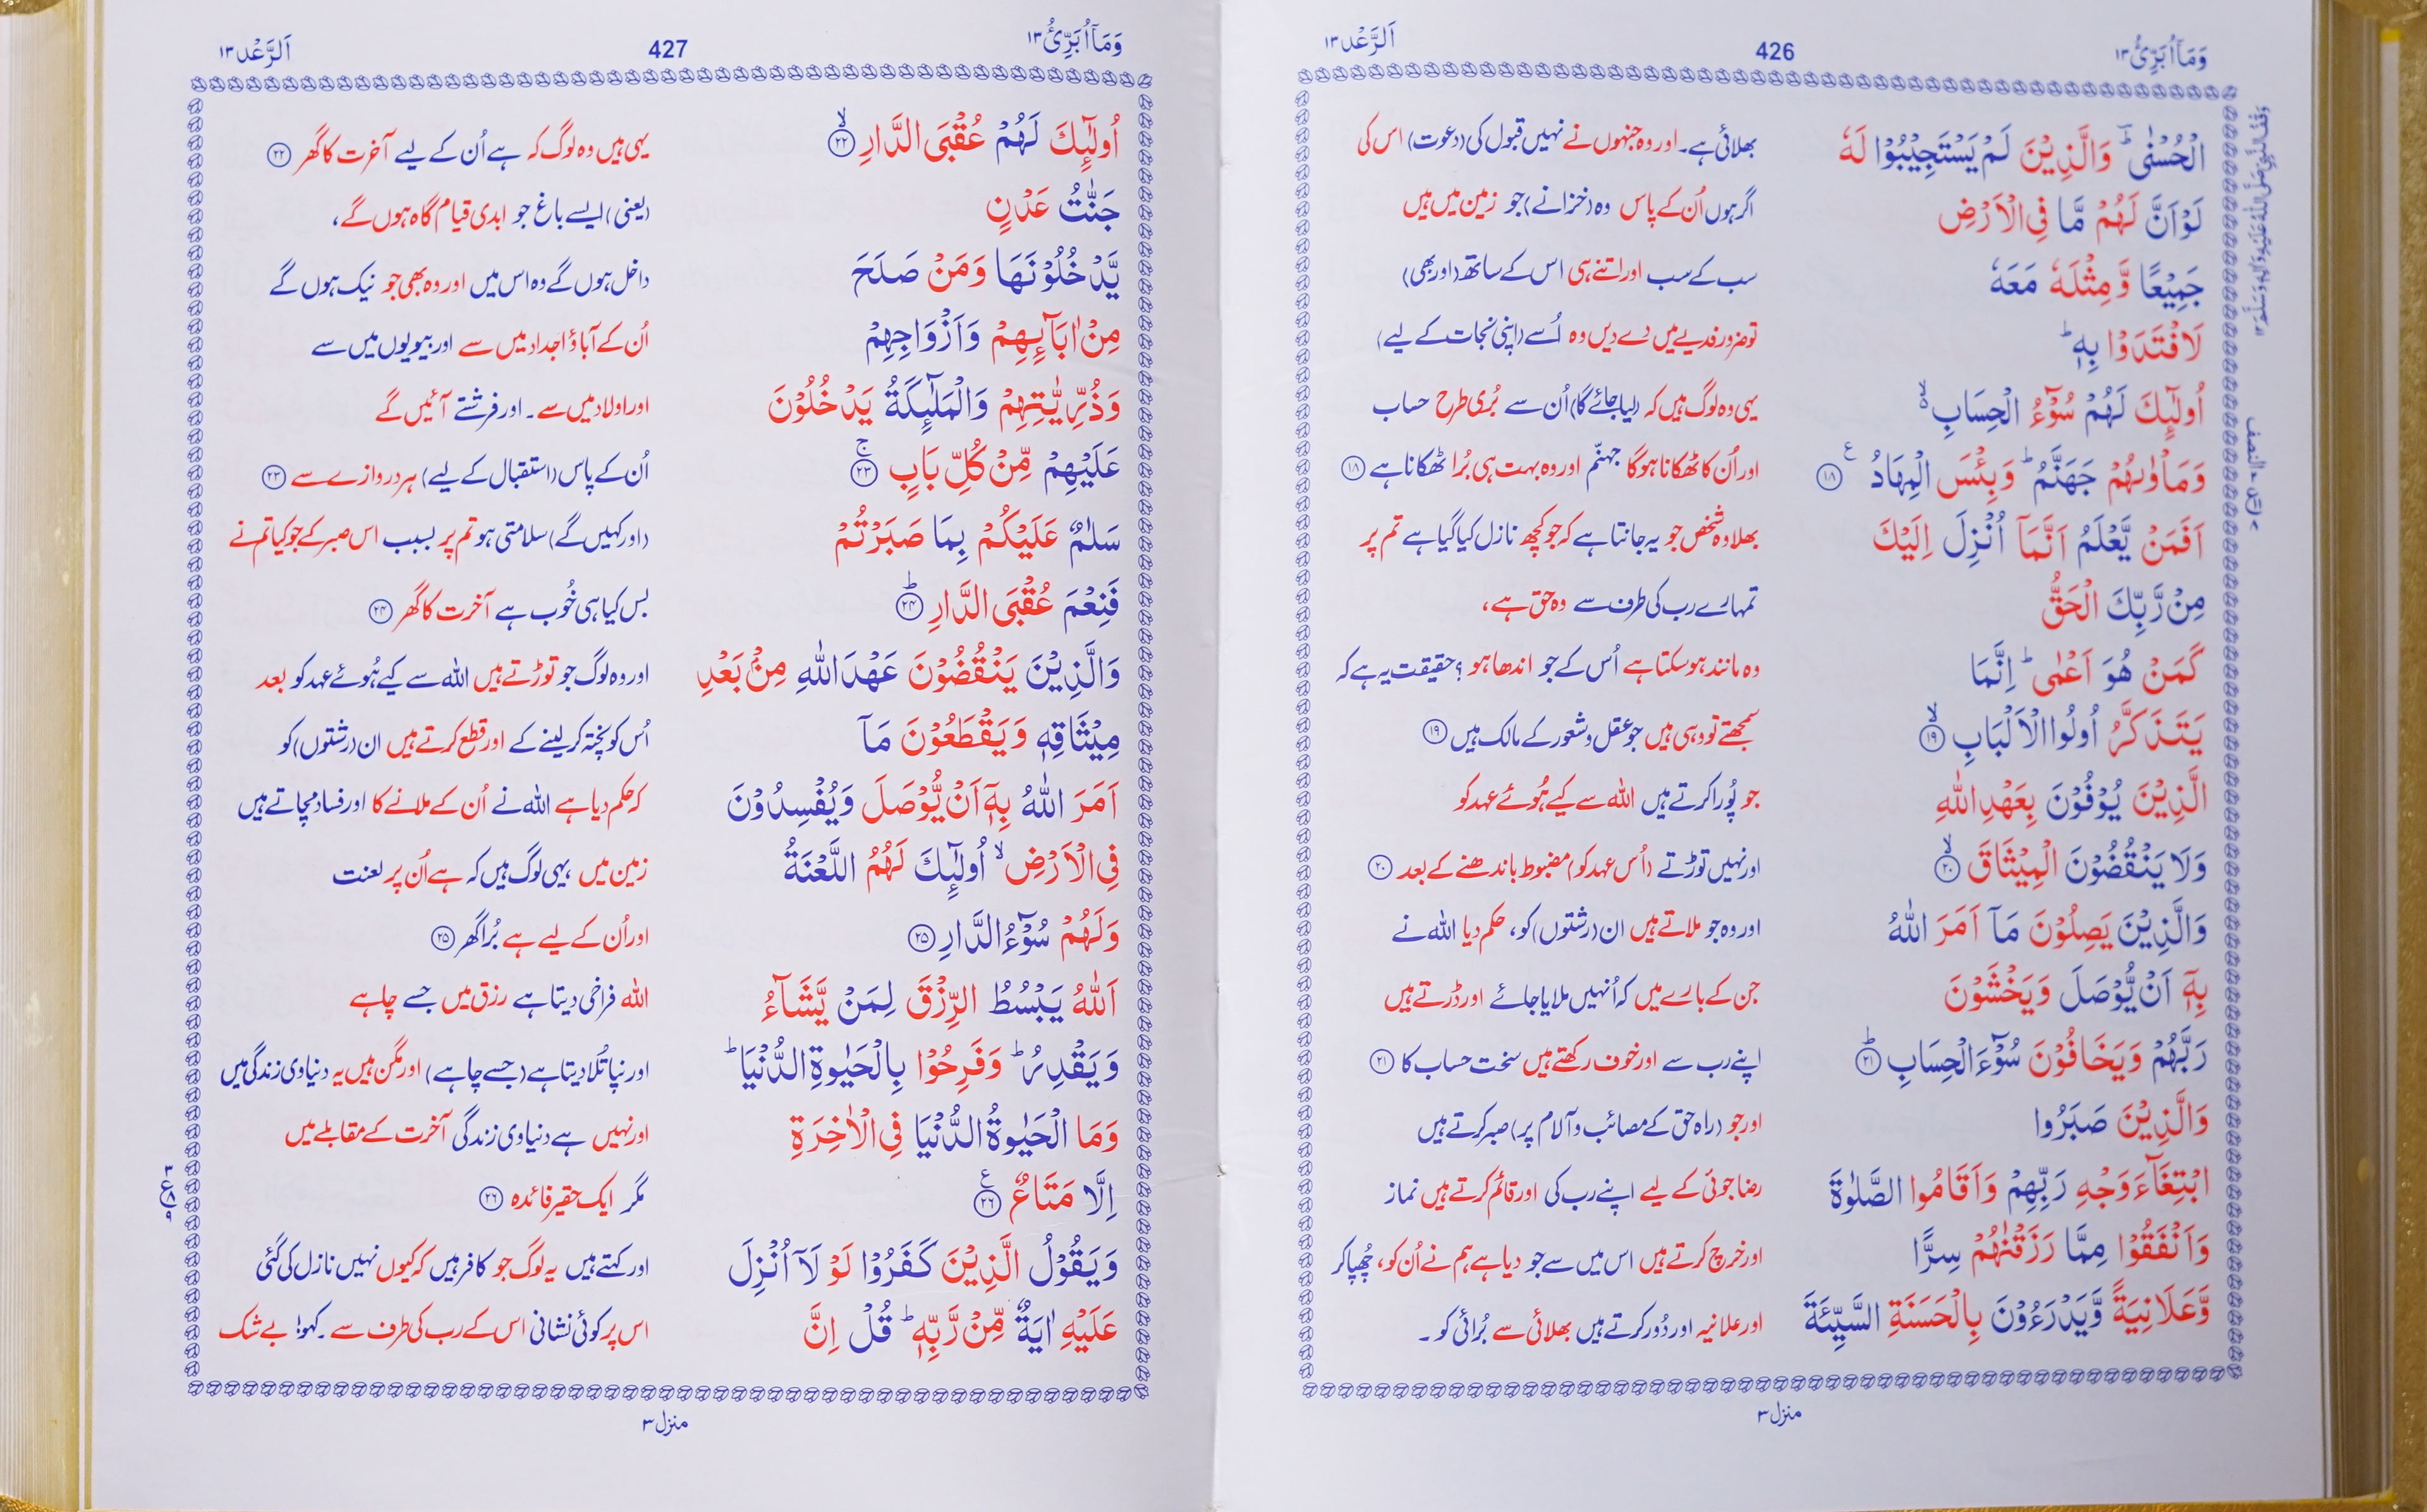 وَمَاۤ اُبَرِّئُ ١٣
426
اَلرَّعْد ١٣
الْحُسْنٰى ؕ وَالَّذِيْنَ لَمْ يَسْتَجِيْبُوْا لَهٗ بھلائی ہے۔ اور وہ جنہوں نے نہیں قبول کی (دعوت) اس کی
لَوْ اَنَّ لَهُمْ مَّا فِى الْاَرْضِ اگر ہوں اُن کے پاس وہ (خزانے) جو زمین میں ہیں
جَمِيْعًا وَّمِثْلَهٗ مَعَهٗ سب کے سب اور اتنے ہی اس کے ساتھ (اور بھی)
لَافْتَدَوْا بِهٖ ؕ تو ضرور فدیے میں دے دیں وہ اُسے (اپنی نجات کے لیے)
اُولٰٓئِكَ لَهُمْ سُوْٓءُ الْحِسَابِ ۙ یہی وہ لوگ ہیں کہ (لیا جائے گا) اُن سے بُری طرح حساب
وَمَاْوٰىهُمْ جَهَنَّمُ ؕ وَبِئْسَ الْمِهَادُ ۧ ⑱ اور اُن کا ٹھکانا ہوگا جہنّم اور وہ بہت ہی بُرا ٹھکانا ہے ⑱
اَفَمَنْ يَّعْلَمُ اَنَّمَاۤ اُنْزِلَ اِلَيْكَ بھلا وہ شخص جو یہ جانتا ہے کہ جو کچھ نازل کیا گیا ہے تم پر
مِنْ رَّبِّكَ الْحَقُّ تمہارے رب کی طرف سے وہ حق ہے،
كَمَنْ هُوَ اَعْمٰى ؕ اِنَّمَا وہ مانند ہو سکتا ہے اُس کے جو اندھا ہو؟ حقیقت یہ ہے کہ
يَتَذَكَّرُ اُولُوا الْاَلْبَابِ ۙ ⑲ سمجھتے تو وہی ہیں جو عقل و شعور کے مالک ہیں ⑲
الَّذِيْنَ يُوْفُوْنَ بِعَهْدِ اللّٰهِ جو پُورا کرتے ہیں اللہ سے کیے ہُوئے عہد کو
وَلَا يَنْقُضُوْنَ الْمِيْثَاقَ ۙ ⑳ اور نہیں توڑتے (اُس عہد کو) مضبوط باندھنے کے بعد ⑳
وَالَّذِيْنَ يَصِلُوْنَ مَاۤ اَمَرَ اللّٰهُ اور وہ جو ملاتے ہیں ان (رشتوں) کو، حکم دیا اللہ نے
بِهٖۤ اَنْ يُّوْصَلَ وَيَخْشَوْنَ جن کے بارے میں کہ اُنہیں ملایا جائے اور ڈرتے ہیں
رَبَّهُمْ وَيَخَافُوْنَ سُوْٓءَ الْحِسَابِ ؕ ㉑ اپنے رب سے اور خوف رکھتے ہیں سخت حساب کا ㉑
وَالَّذِيْنَ صَبَرُوا اور جو (راہ حق کے مصائب و آلام پر) صبر کرتے ہیں
ابْتِغَآءَ وَجْهِ رَبِّهِمْ وَاَقَامُوا الصَّلٰوةَ رضا جوئی کے لیے اپنے رب کی اور قائم کرتے ہیں نماز
وَاَنْفَقُوْا مِمَّا رَزَقْنٰهُمْ سِرًّا اور خرچ کرتے ہیں اس میں سے جو دیا ہے ہم نے اُن کو، چُھپا کر
وَّعَلَانِيَةً وَّيَدْرَءُوْنَ بِالْحَسَنَةِ السَّيِّئَةَ اور علانیہ اور دُور کرتے ہیں بھلائی سے بُرائی کو۔
منزل ٣
وَمَاۤ اُبَرِّئُ ١٣
427
اَلرَّعْد ١٣
اُولٰٓئِكَ لَهُمْ عُقْبَى الدَّارِ ۙ ㉒ یہی ہیں وہ لوگ کہ ہے اُن کے لیے آخرت کا گھر ㉒
جَنّٰتُ عَدْنٍ (یعنی) ایسے باغ جو ابدی قیام گاہ ہوں گے،
يَّدْخُلُوْنَهَا وَمَنْ صَلَحَ داخل ہوں گے وہ اس میں اور وہ بھی جو نیک ہوں گے
مِنْ اٰبَآئِهِمْ وَاَزْوَاجِهِمْ اُن کے آباؤ اجداد میں سے اور بیویوں میں سے
وَذُرِّيّٰتِهِمْ وَالْمَلٰٓئِكَةُ يَدْخُلُوْنَ اور اولاد میں سے۔ اور فرشتے آئیں گے
عَلَيْهِمْ مِّنْ كُلِّ بَابٍ ۚ ㉓ اُن کے پاس (استقبال کے لیے) ہر دروازے سے ㉓
سَلٰمٌ عَلَيْكُمْ بِمَا صَبَرْتُمْ (اور کہیں گے) سلامتی ہو تم پر بسبب اس صبر کے جو کیا تم نے
فَنِعْمَ عُقْبَى الدَّارِ ؕ ㉔ بس کیا ہی خُوب ہے آخرت کا گھر ㉔
وَالَّذِيْنَ يَنْقُضُوْنَ عَهْدَ اللّٰهِ مِنْۢ بَعْدِ اور وہ لوگ جو توڑتے ہیں اللہ سے کیے ہُوئے عہد کو بعد
مِيْثَاقِهٖ وَيَقْطَعُوْنَ مَاۤ اُس کو پختہ کر لینے کے اور قطع کرتے ہیں ان (رشتوں) کو
اَمَرَ اللّٰهُ بِهٖۤ اَنْ يُّوْصَلَ وَيُفْسِدُوْنَ کہ حکم دیا ہے اللہ نے اُن کے ملانے کا اور فساد مچاتے ہیں
فِى الْاَرْضِ ۙ اُولٰٓئِكَ لَهُمُ اللَّعْنَةُ زمین میں یہی لوگ ہیں کہ ہے اُن پر لعنت
وَلَهُمْ سُوْٓءُ الدَّارِ ㉕ اور اُن کے لیے ہے بُرا گھر ㉕
اَللّٰهُ يَبْسُطُ الرِّزْقَ لِمَنْ يَّشَآءُ اللہ فراخی دیتا ہے رزق میں جسے چاہے
وَيَقْدِرُ ؕ وَفَرِحُوْا بِالْحَيٰوةِ الدُّنْيَا ؕ اور نپا تُلا دیتا ہے (جسے چاہے) اور مگن ہیں یہ دنیاوی زندگی میں
وَمَا الْحَيٰوةُ الدُّنْيَا فِى الْاٰخِرَةِ اور نہیں ہے دنیاوی زندگی آخرت کے مقابلے میں
اِلَّا مَتَاعٌ ۧ ㉖ مگر ایک حقیر فائدہ ㉖
وَيَقُوْلُ الَّذِيْنَ كَفَرُوْا لَوْ لَاۤ اُنْزِلَ اور کہتے ہیں یہ لوگ جو کافر ہیں کہ کیوں نہیں نازل کی گئی
عَلَيْهِ اٰيَةٌ مِّنْ رَّبِّهٖ ؕ قُلْ اِنَّ اس پر کوئی نشانی اس کے رب کی طرف سے۔ کہو! بے شک
منزل ٣